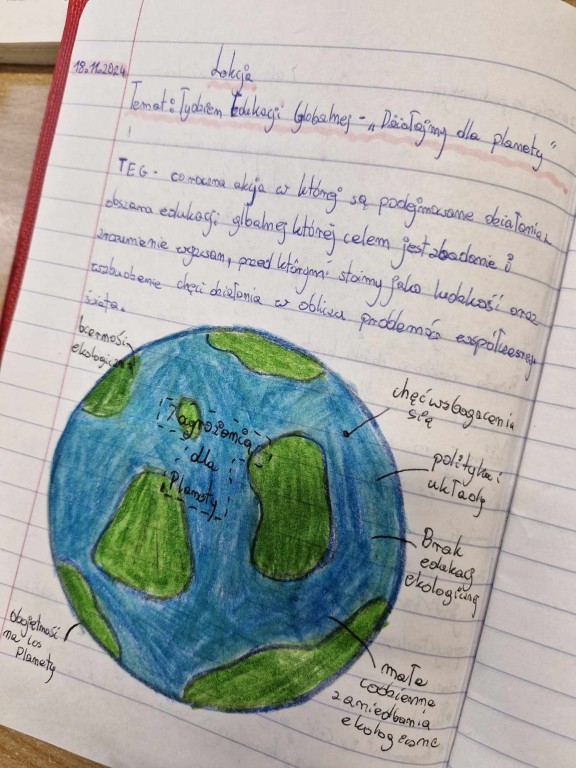 18.11.2024
Lekcja
Temat: Tydzień Edukacji Globalnej - „Działajmy dla planety"
TEG - coroczna akcja w której są podejmowane działania z
obszaru edukacji globalnej której celem jest zbadanie i
zrozumienie wyzwań, przed którymi stoimy jako ludzkość oraz
wzbudzenie chęci działania w obliczu problemów współczesnego
świata.
bierność
ekologiczna
Zagrożenia
dla
Planety
chęć wzbogacenia
się
polityka i
układy
Brak
edukacji
ekologicznej
małe
codzienne
zaniedbania
ekologiczne
obojętność
na los
Planety